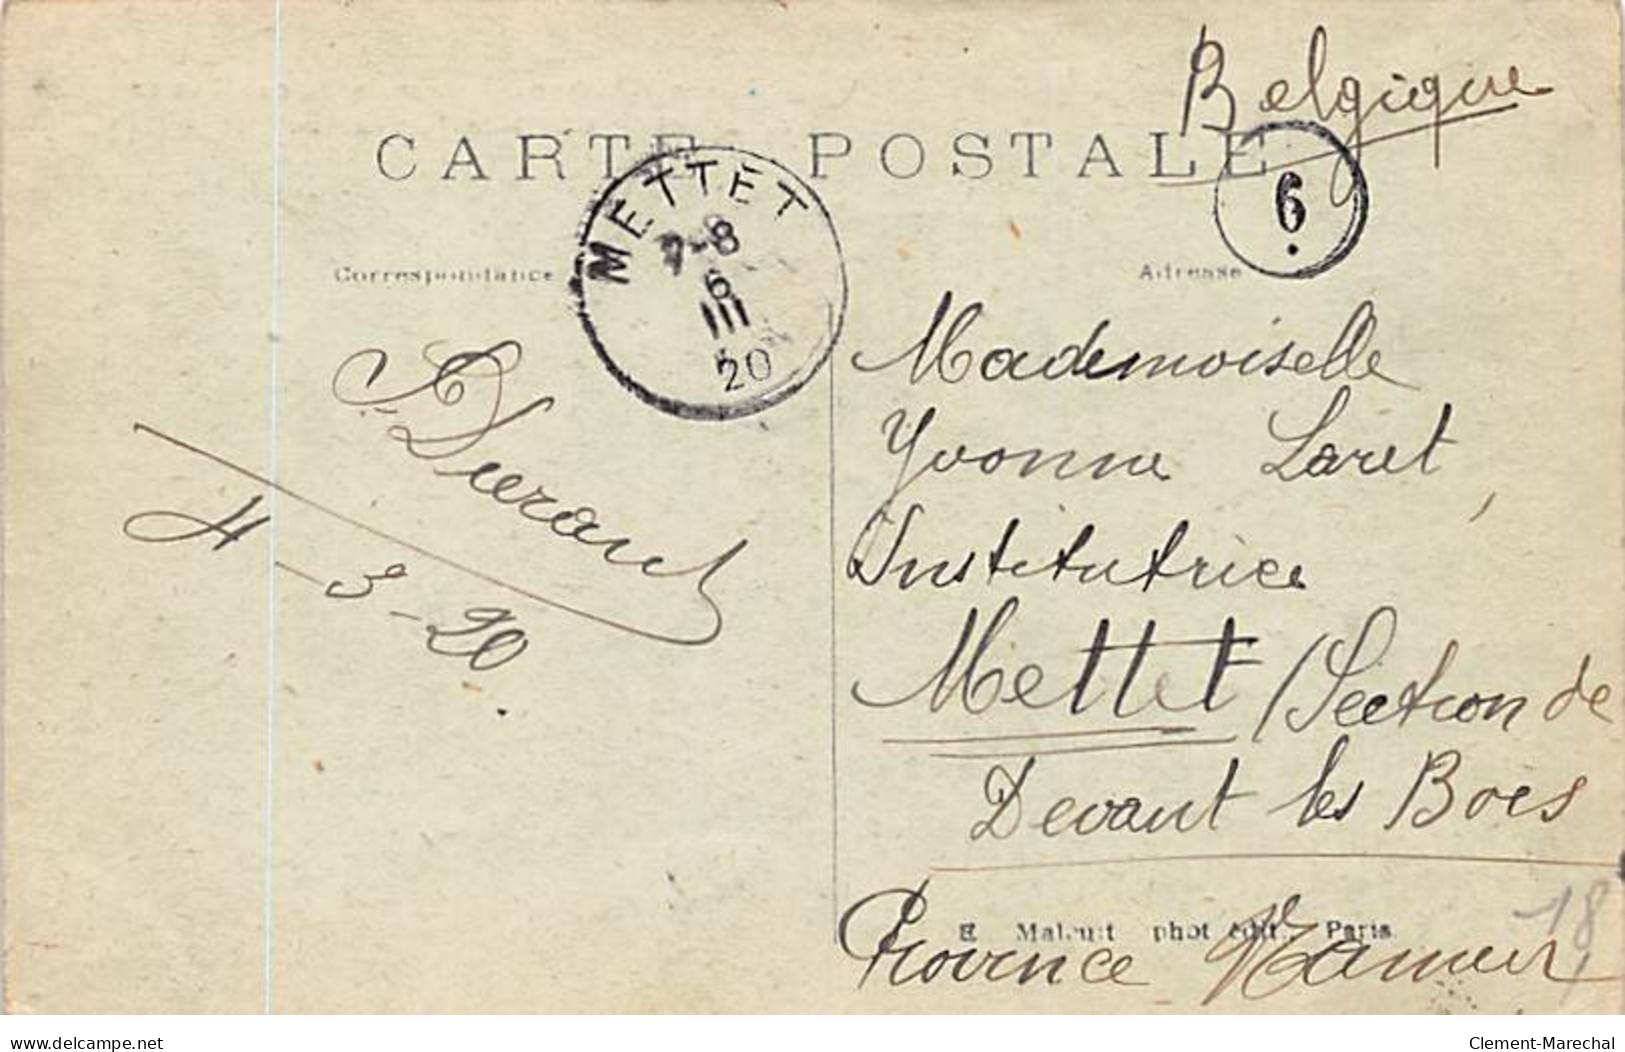 Belgique
CARTE POSTALE
METTET
7-8
6
III
20
6
Correspondance
Adresse
Durant
4-3-20
Mademoiselle
Yvonne Laret
Institutrice
Mettet (Section de
Devant les Bois
E Maleuit phot édit. Paris
Province Namur
18
delcampe.net
Clement-Marechal